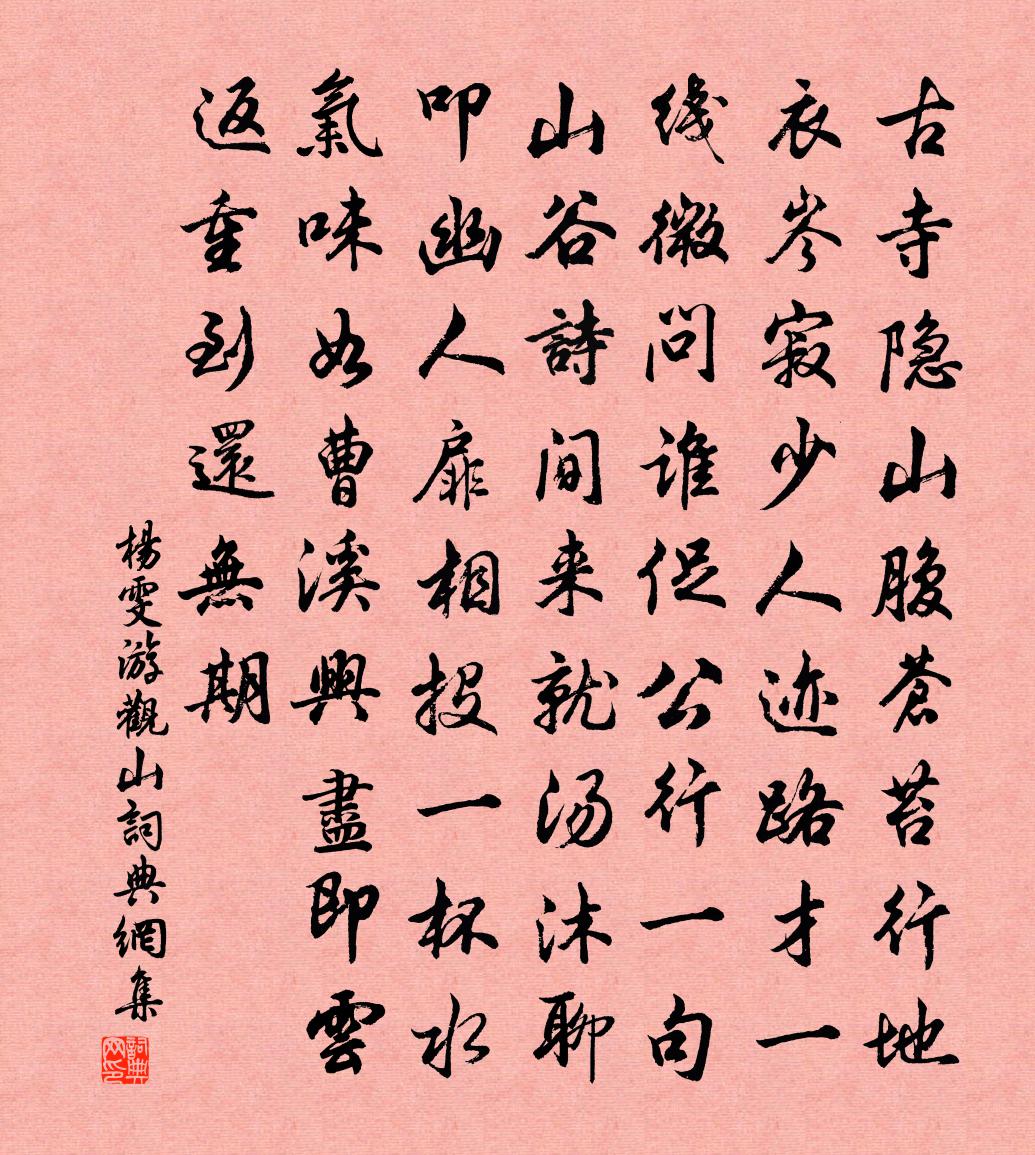 古寺隐山腹苍苔行地
衣岑寂少人迹路才一
线微问谁促公行一句
山谷詩间来就汤沐聊
叩幽人扉相投一杯水
氣味如曹溪興盡即雲
返重到還無期
楊雯游觀山詞典網集
詞典网印